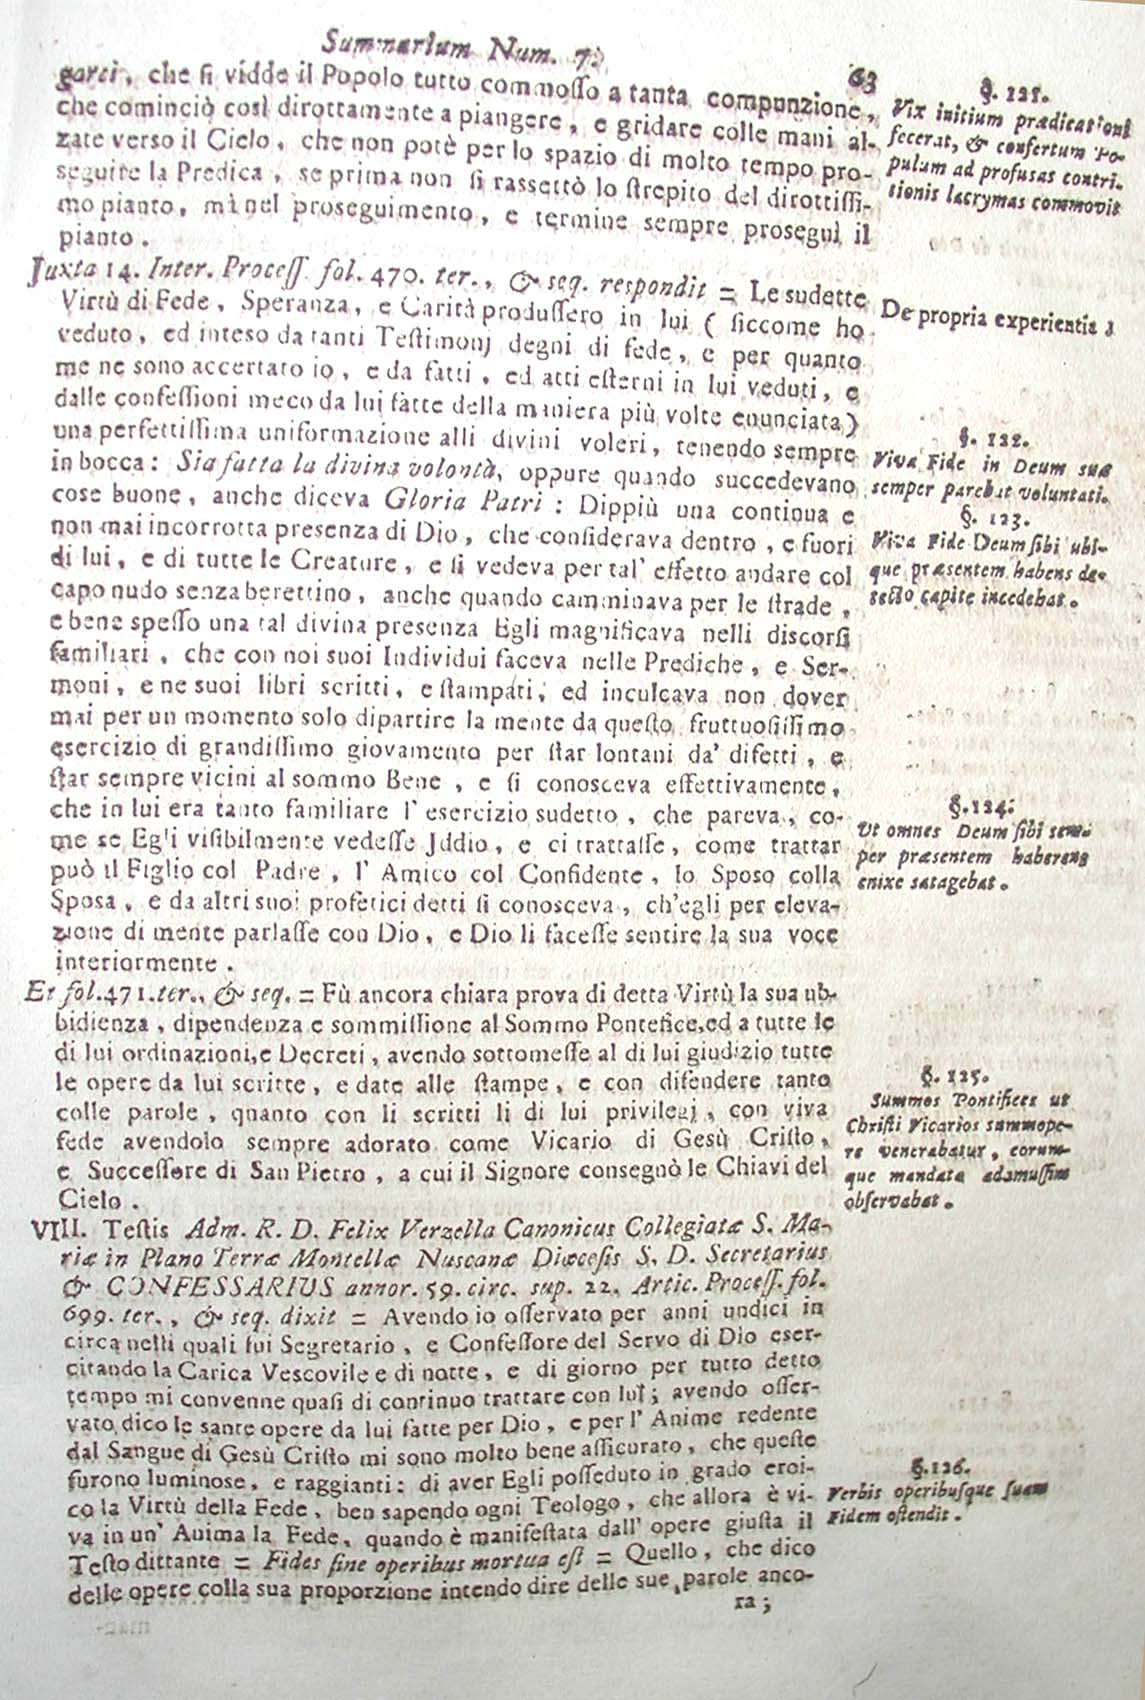 Summarium Num. 7.
63
garci, che ſi vidde il Popolo tutto commoſſo a tanta compunzione,
che cominciò così dirottamente a piangere, e gridare colle mani al-
zate verso il Cielo, che non potè per lo spazio di molto tempo pro-
seguire la Predica, se prima non ſi rassettò lo ſtrepito del dirottiſſi-
mo pianto, mà nel proseguimento, e termine sempre proseguì il
pianto.
§. 121.
Vix initium prædicationi
fecerat, & confertum Po-
pulum ad profusas contri-
tionis lacrymas commovit
Juxta 14. Inter. Proceſſ. fol. 470. ter., & seq. respondit = Le sudette
Virtù di Fede, Speranza, e Carità produſſero in lui ( ſiccome ho
veduto, ed inteso da tanti Teſtimonj degni di fede, e per quanto
me ne sono accertato io, e da fatti, ed atti eſterni in lui veduti, e
dalle confeſſioni meco da lui fatte della maniera più volte enunciata)
una perfettiſſima uniformazione alli divini voleri, tenendo sempre
in bocca: Sia fatta la divina volontà, oppure quando succedevano
cose buone, anche diceva Gloria Patri: Dippiù una continua e
non mai incorrotta presenza di Dio, che conſiderava dentro, e fuori
di lui, e di tutte le Creature, e ſi vedeva per tal' effetto andare col
capo nudo senza berettino, anche quando camminava per le ſtrade,
e bene speſſo una tal divina presenza Egli magnificava nelli discorſi
familiari, che con noi suoi Individui faceva nelle Prediche, e Ser-
moni, e ne suoi libri scritti, e ſtampati, ed inculcava non dover
mai per un momento solo dipartire la mente da queſto fruttuoſiſſimo
esercizio di grandiſſimo giovamento per ſtar lontani da' difetti, e
ſtar sempre vicini al sommo Bene, e ſi conosceva effettivamente,
che in lui era tanto familiare l' esercizio sudetto, che pareva, co-
me se Egli viſibilmente vedeſſe Jddio, e ci trattaſſe, come trattar
può il Figlio col Padre, l' Amico col Confidente, lo Sposo colla
Sposa, e da altri suoi profetici detti ſi conosceva, ch'egli per eleva-
zione di mente parlaſſe con Dio, e Dio li faceſſe sentire la sua voce
interiormente.
De propria experientia
§. 122.
Viva Fide in Deum suæ
semper parebat voluntati.
§. 123.
Viva Fide Deum ſibi ubi-
que præsentem habens de-
tecto capite incedebat.
§. 124.
Ut omnes Deum ſibi sem-
per præsentem haberent
enixe satagebat.
Et fol. 471. ter., & seq. = Fù ancora chiara prova di detta Virtù la sua ub-
bidienza, dipendenza e sommiſſione al Sommo Pontefice, ed a tutte le
di lui ordinazioni, e Decreti, avendo sottomeſſe al di lui giudizio tutte
le opere da lui scritte, e date alle ſtampe, e con difendere tanto
colle parole, quanto con li scritti li di lui privilegj, con viva
fede avendolo sempre adorato come Vicario di Gesù Criſto,
e Succeſſore di San Pietro, a cui il Signore consegnò le Chiavi del
Cielo.
§. 125.
Summos Pontifices ut
Chriſti Vicarios summope-
re venerabatur, eorum-
que mandata adamuſſim
obſervabat.
VIII. Teſtis Adm. R. D. Felix Verzella Canonicus Collegiatæ S. Ma-
riæ in Plano Terræ Montellæ Nuscanæ Diœceſis S. D. Secretarius
& CONFESSARIUS annor. 59. circ. sup. 22. Artic. Proceſſ. fol.
699. ter., & seq. dixit = Avendo io oſſervato per anni undici in
circa nelli quali fui Segretario, e Confeſſore del Servo di Dio eser-
citando la Carica Vescovile e di notte, e di giorno per tutto detto
tempo mi convenne quaſi di continuo trattare con lui; avendo oſſer-
vato dico le sante opere da lui fatte per Dio, e per l' Anime redente
dal Sangue di Gesù Criſto mi sono molto bene aſſicurato, che queſte
furono luminose, e raggianti: di aver Egli poſſeduto in grado eroi-
co la Virtù della Fede, ben sapendo ogni Teologo, che allora è vi-
va in un' Anima la Fede, quando è manifeſtata dall' opere giuſta il
Teſto dittante = Fides ſine operibus mortua eſt = Quello, che dico
delle opere colla sua proporzione intendo dire delle sue parole anco-
ra;
§. 126.
Verbis operibuſque ſuam
Fidem oſtendit.